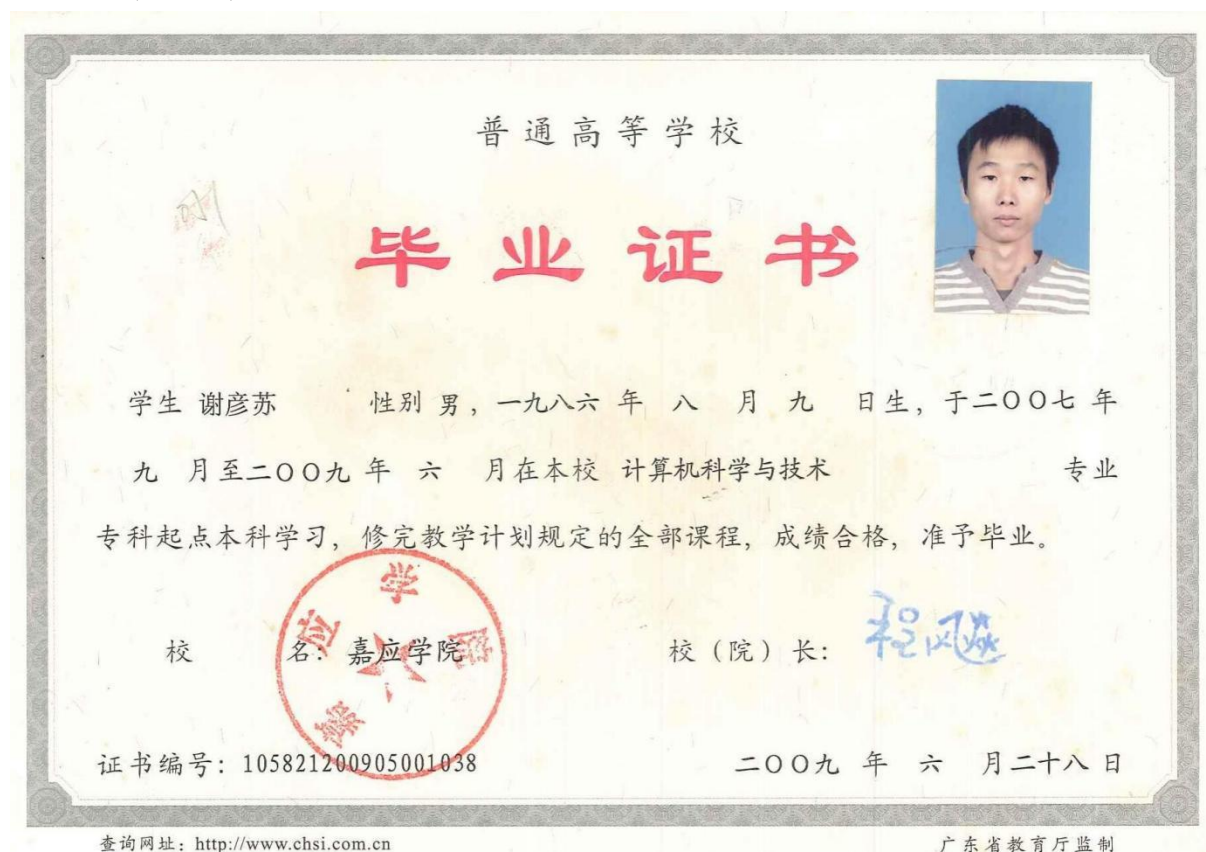 普通高等学校
毕业证书
学生 谢彦苏 性别 男，一九八六 年 八 月 九 日生，于二〇〇七 年
九 月至二〇〇九 年 六 月在本校 计算机科学与技术 专业
专科起点本科学习，修完教学计划规定的全部课程，成绩合格，准予毕业。
校 名：嘉应学院 校（院）长：程飚
嘉应学院
证书编号：105821200905001038 二〇〇九 年 六 月二十八 日
查询网址：http://www.chsi.com.cn 广东省教育厅监制